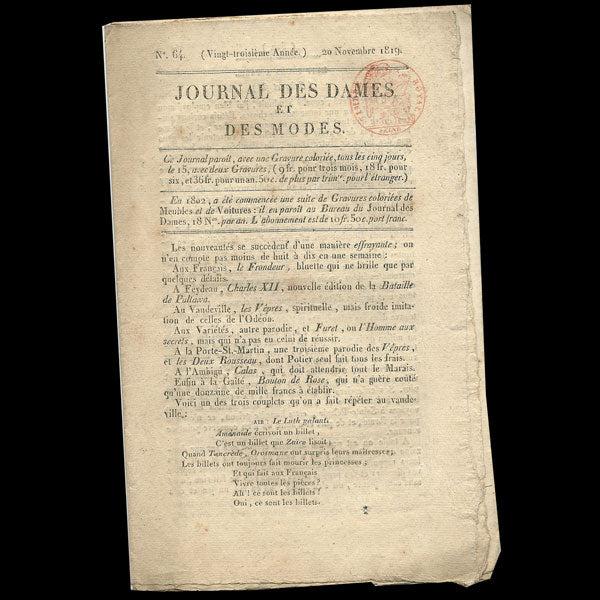 N°. 64. (Vingt-troisième Année.) 20 Novembre 1819.
JOURNAL DES DAMES
ET
DES MODES.
Ce Journal paroît, avec une Gravure coloriée, tous les cinq jours,
le 15, avec deux Gravures, (9 fr. pour trois mois, 18 fr. pour
six, et 36 fr. pour un an. 50 c. de plus par trim.re pour l'étranger.)
En 1802, a été commencée une suite de Gravures coloriées de
Meubles et de Voitures : il en paroît au Bureau du Journal des
Dames, 18 N.os par an. L'abonnement est de 10 fr. 50 c. port franc.
Les nouveautés se succèdent d'une manière effrayante ; on
n'en compte pas moins de huit à dix en une semaine :
Aux Français, le Frondeur, bluette qui ne brille que par
quelques détails.
A Feydeau, Charles XII, nouvelle édition de la Bataille
de Pultawa.
Au Vaudeville, les Vêpres, spirituelle, mais froide imita-
tion de celles de l'Odéon.
Aux Variétés, autre parodie, et Furet, ou l'Homme aux
secrets, mais qui n'a pas eu celui de réussir.
A la Porte-St.-Martin, une troisième parodie des Vêpres,
et les Deux Rousseau, dont Potier seul fait tous les frais.
A l'Ambigu, Calas, qui doit attendrir tout le Marais.
Enfin à la Gaîté, Bouton de Rose, qui n'a guère coûté
qu'une douzaine de mille francs à établir.
Voici un des trois couplets qu'on a fait répéter au vaude-
ville :
AIR : Le Luth galant.
Aménaïde écrivoit un billet,
C'est un billet que Zaïre lisoit ;
Quand Tancrède, Orosmane ont surpris leurs maîtresses ;
Les billets ont toujours fait mourir les princesses ;
Et qui fait aux Français
Vivre toutes les pièces ?
Ah ! ce sont les billets !
Oui, ce sont les billets.